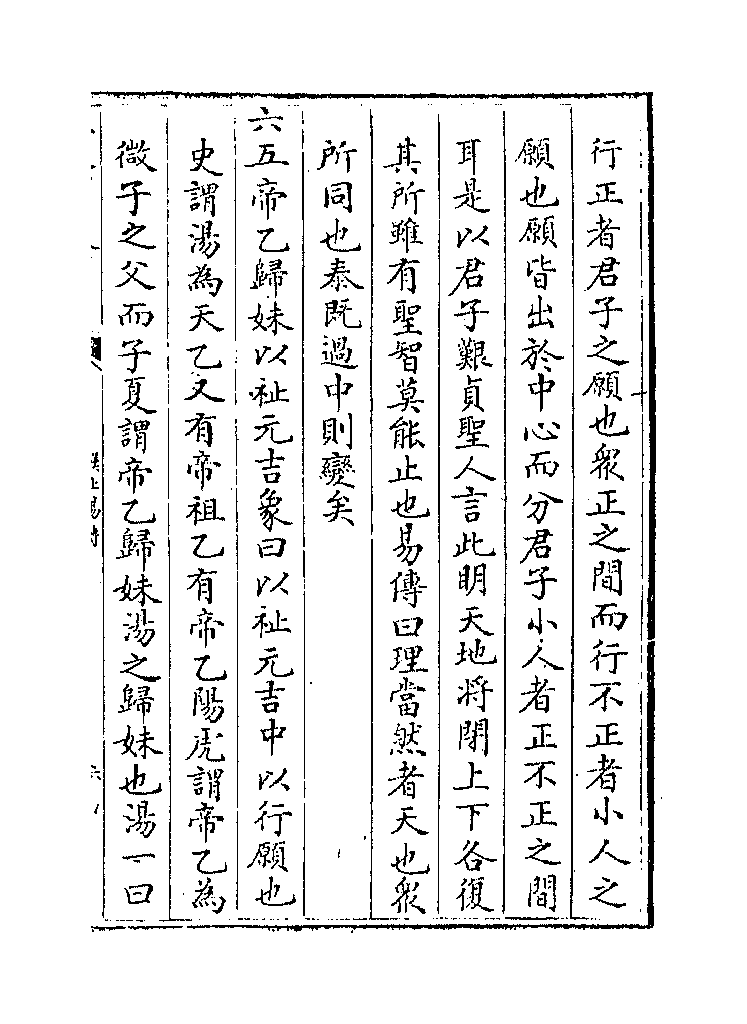 行正者君子之願也衆正之間而行不正者小人之
願也願皆出於中心而分君子小人者正不正之間
耳是以君子艱貞聖人言此明天地将閉上下各復
其所雖有聖智莫能止也易傳曰理當然者天也衆
所同也泰既過中則變矣
六五帝乙歸妹以祉元吉象曰以祉元吉中以行願也
史謂湯為天乙又有帝祖乙有帝乙陽虎謂帝乙為
微子之父而子夏謂帝乙歸妹湯之歸妹也湯一曰